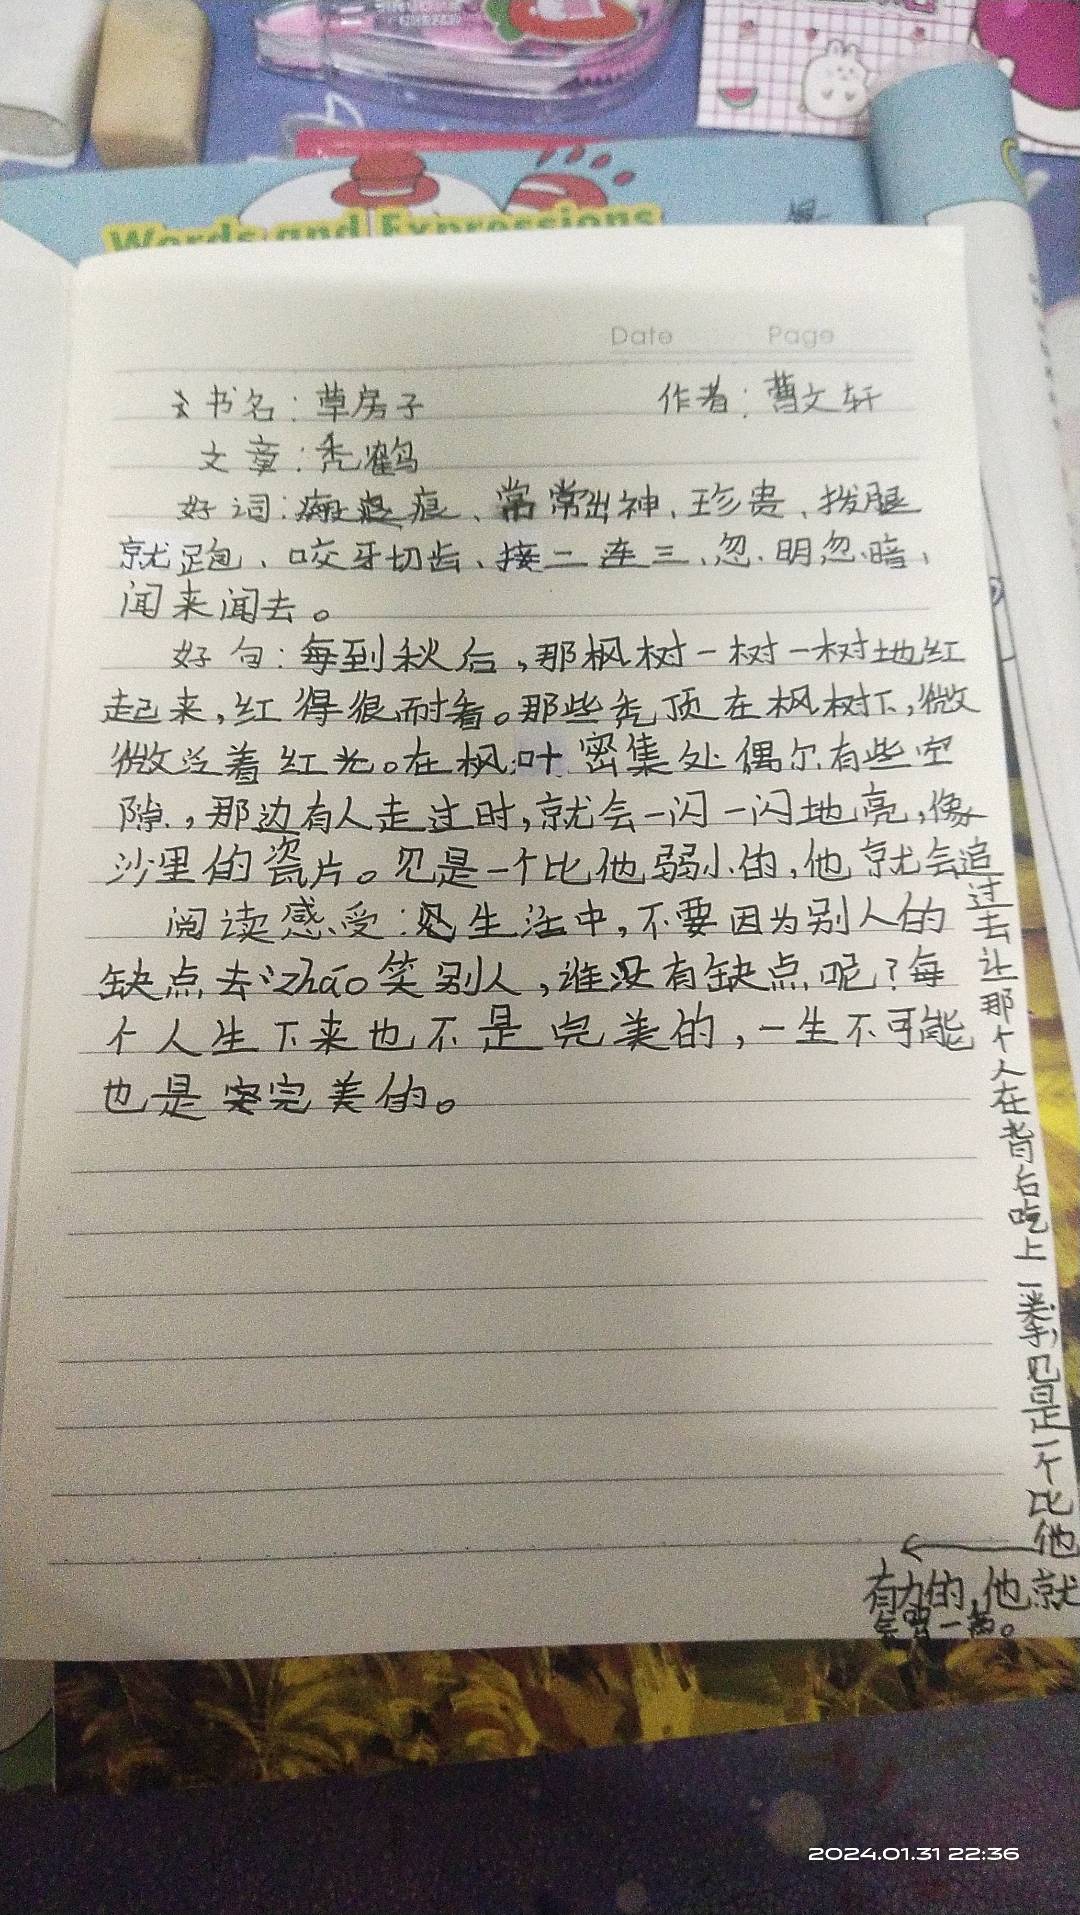 Words and Expressions
Date Page
书名：草房子 作者：曹文轩
文章：秃鹤
好词：痕、常常出神、珍贵、拨腿
就跑、咬牙切齿、接二连三、忽明忽暗、
闻来闻去。
好句：每到秋后，那枫树一树一树地红
起来，红得很耐看。那些秃顶在枫树下，微
微泛着红光。在枫叶密集处偶尔有些空
隙，那边有人走过时，就会一闪一闪地亮，像
沙里的瓷片。见是一个比他弱小的，他就会追
过去让那个人在背后吃上一拳，见是一个比他
有力的，他就
会骂一声。
阅读感受：生活中，不要因为别人的
缺点去zhāo笑别人，谁没有缺点呢？每
个人生下来也不是完美的，一生不可能
也是完美的。
2024.01.31 22:36